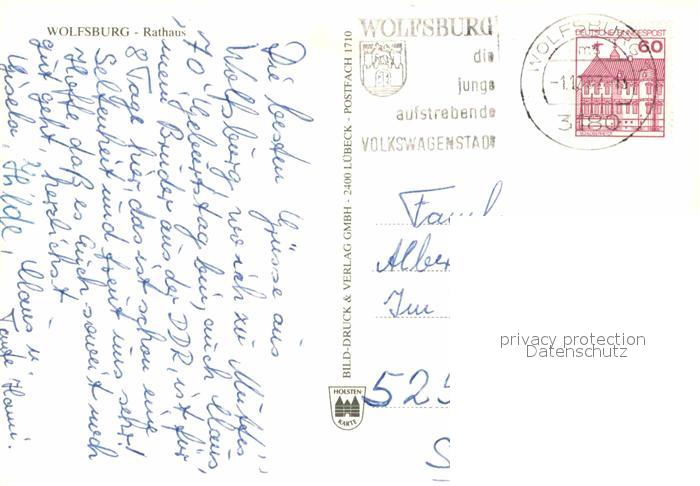 WOLFSBURG - Rathaus
Die besten Grüsse aus
Wolfsburg, wo ich zu Mutti's
70. Geburtstag bin, auch Claus,
mein Bruder aus der DDR, ist für
8 Tage hier, das ist schon eine
Seltenheit und freut uns sehr!
Hoffe daß es Euch soweit noch
gut geht, herzlichst
Gisela, Hilde, Claus u.
Tante Hanni.
BILD-DRUCK & VERLAG GMBH - 2400 LÜBECK - POSTFACH 1710
HOLSTEN-
KARTE
WOLFSBURG
die
junge
aufstrebende
VOLKSWAGENSTADT
WOLFSBURG
3180
DEUTSCHE BUNDESPOST
60
Fam
Alber
Im
525
S
privacy protection
Datenschutz